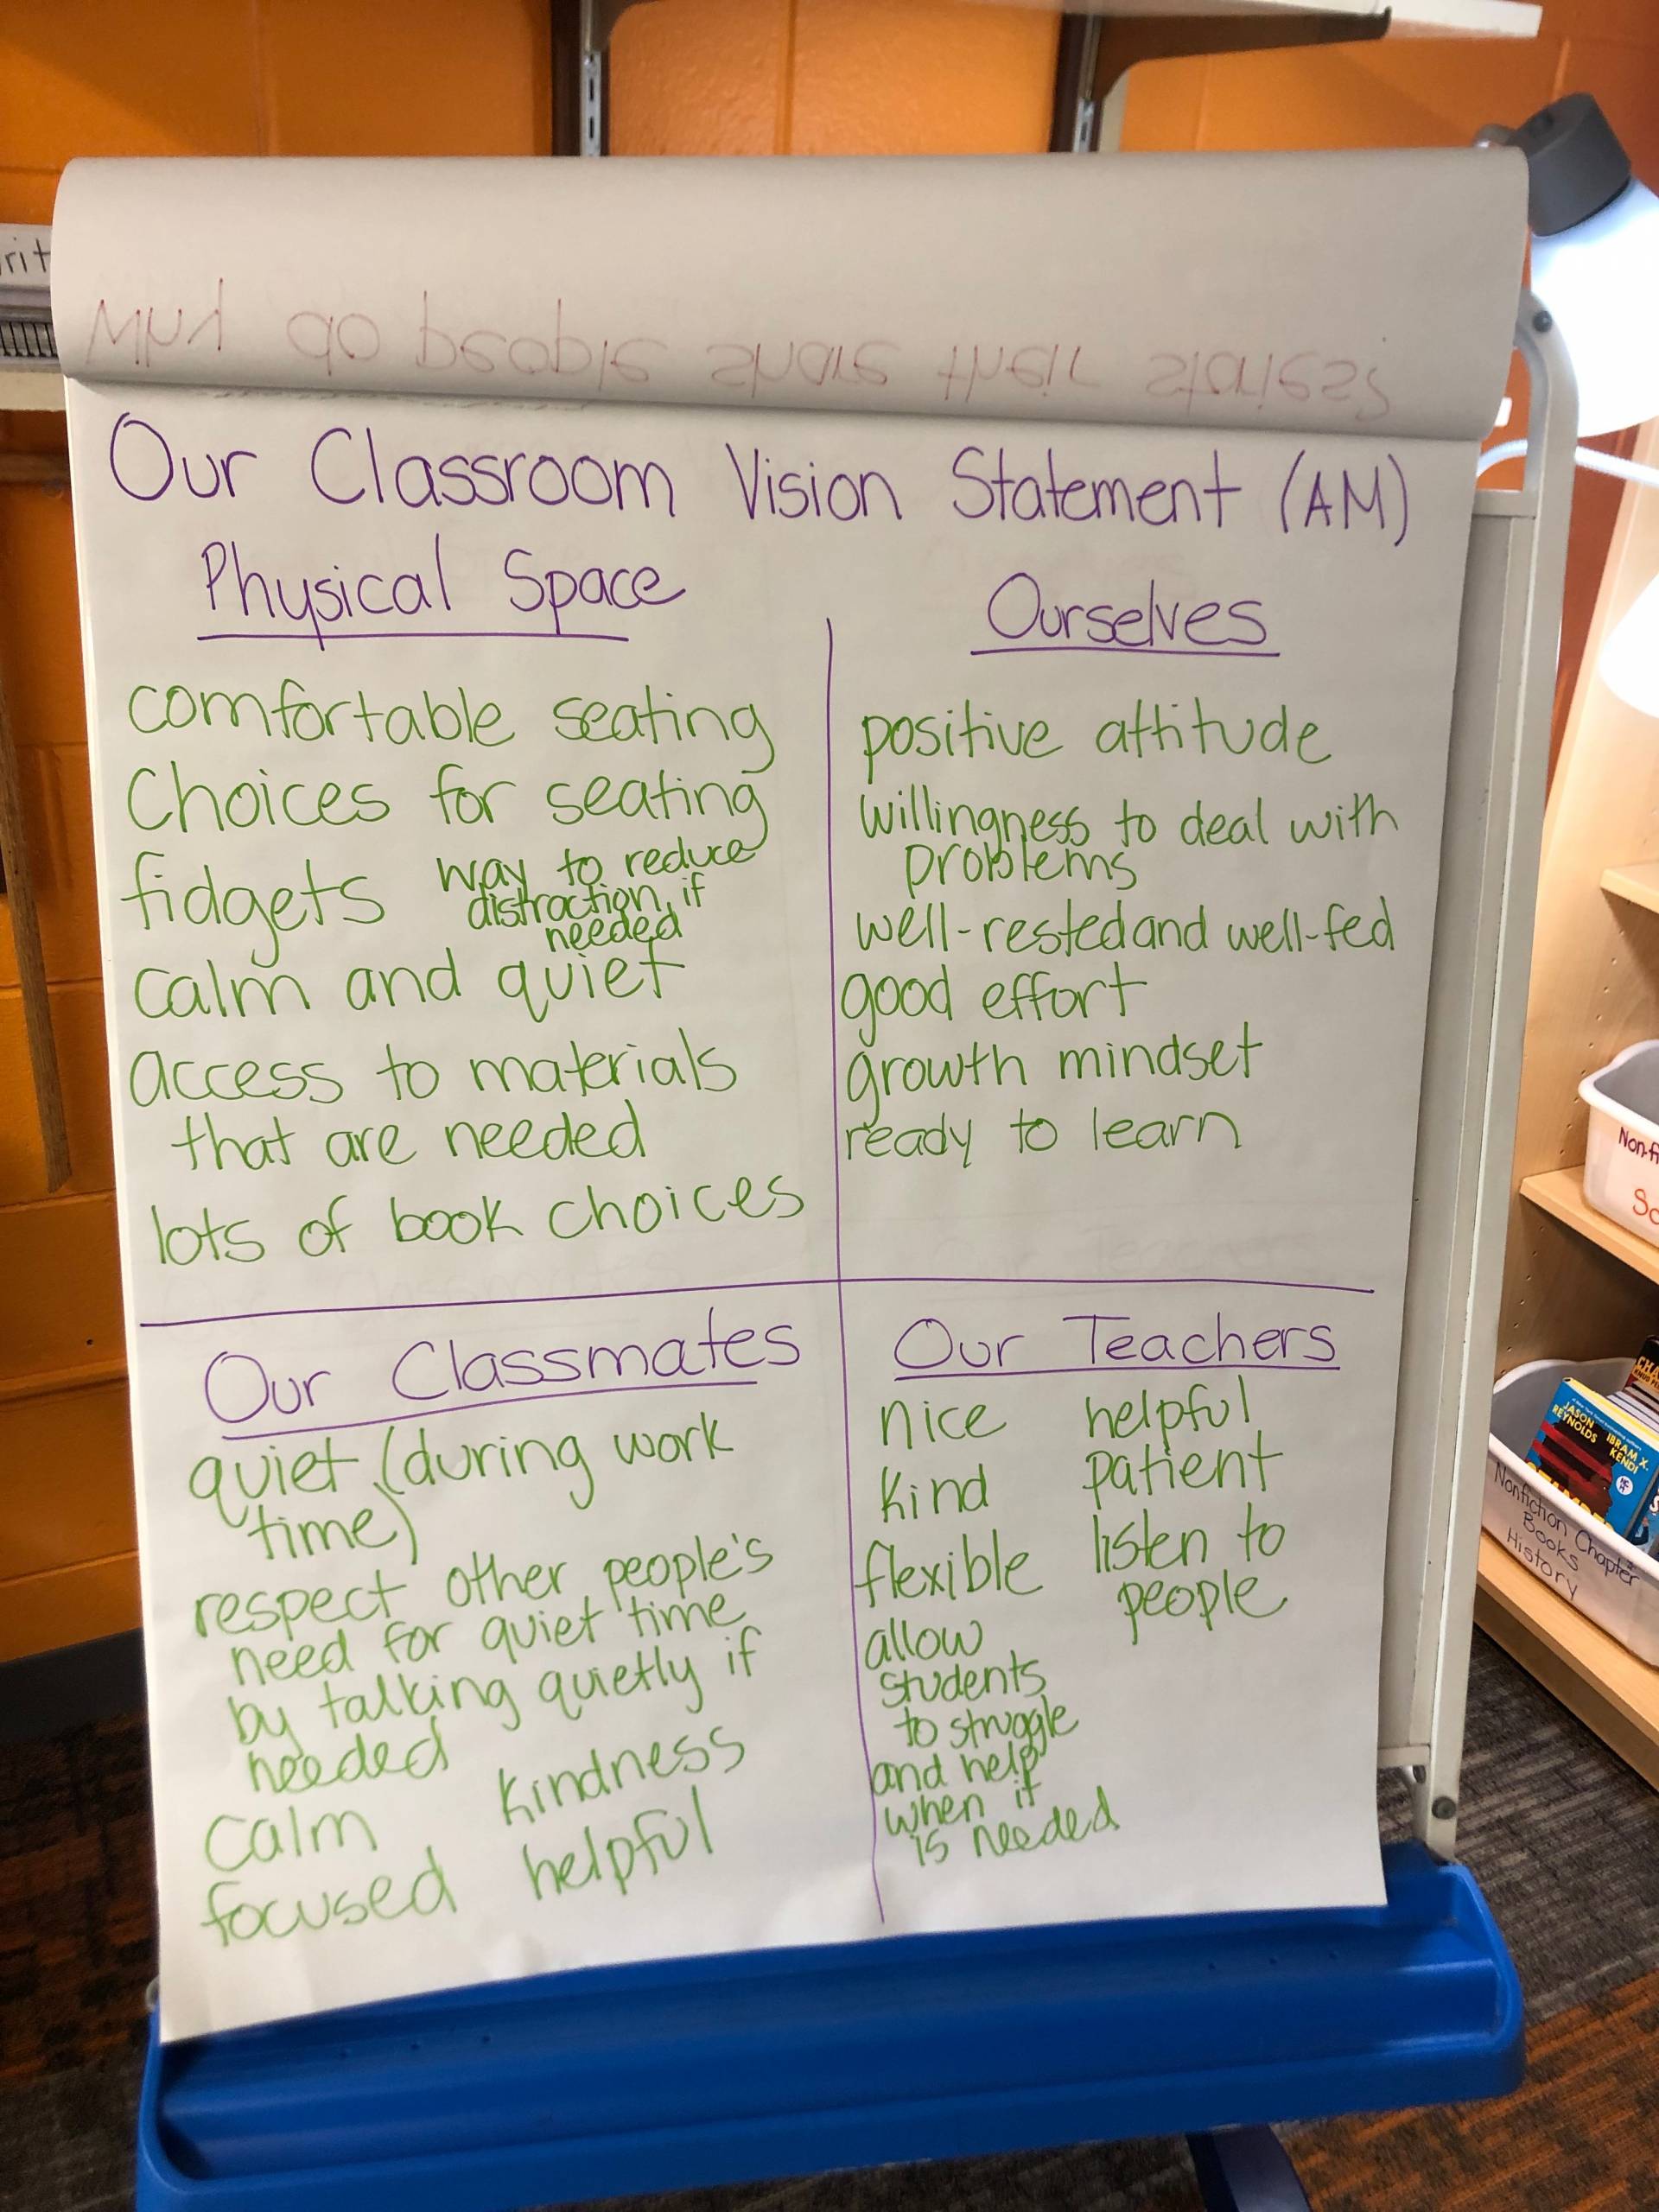 rit
Why do people share their stories?
Our Classroom Vision Statement (AM)
Physical Space
comfortable seating
Choices for seating
fidgets
way to reduce
distraction, if
needed
calm and quiet
access to materials
that are needed
lots of book choices
Ourselves
positive attitude
willingness to deal with
problems
well-rested and well-fed
good effort
growth mindset
ready to learn
Our Classmates
quiet (during work
time)
respect other people's
need for quiet time
by talking quietly if
needed
Calm
kindness
focused
helpful
Our Teachers
nice
kind
flexible
allow
students
to struggle
and help
when it
is needed
helpful
patient
listen to
people
Non-fi
Sc
JASON
REYNOLDS
IBRAM X.
KENDI
Nonfiction Chapter
Books
History